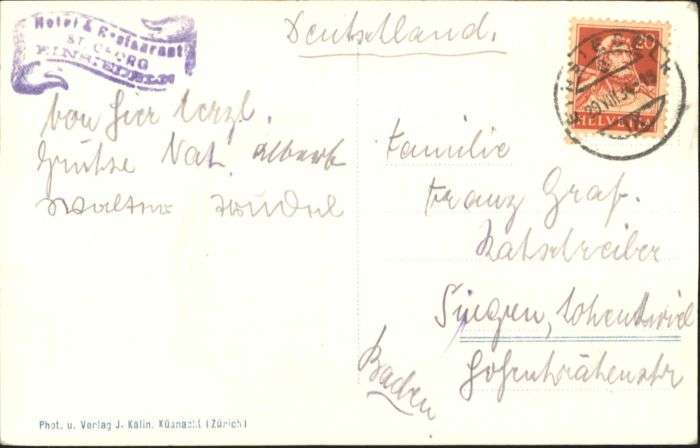 Hotel & Restaurant
ST. GEORG
EINSIEDELN
Deutschland.
20
HELVETIA
von hier herzl.
Grüsse Nat. Albert
Walter
Familie
Franz Graf.
Ratschreiber
Singen, Hohentwiel
Hohenkrähenstr
Baden
Phot. u. Verlag J. Kälin, Küsnacht (Zürich)